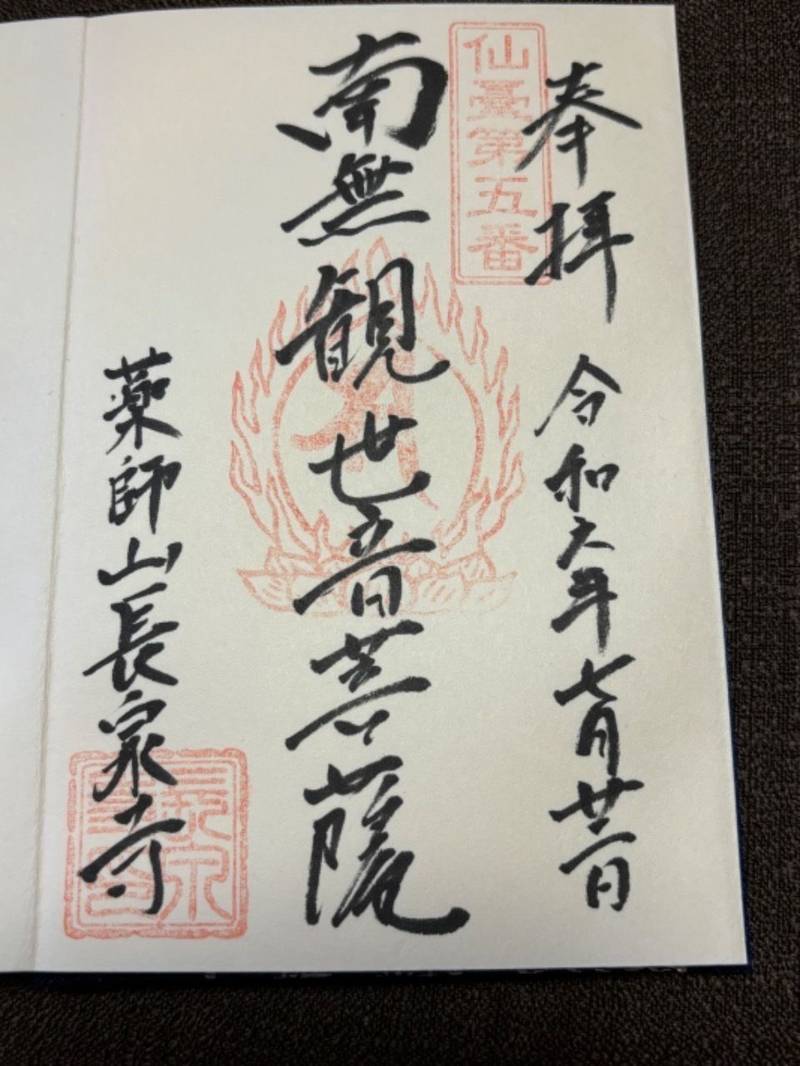 奉拝
令和六年七月廿一日
仙臺第五番
南無観世音菩薩
薬師山長泉寺